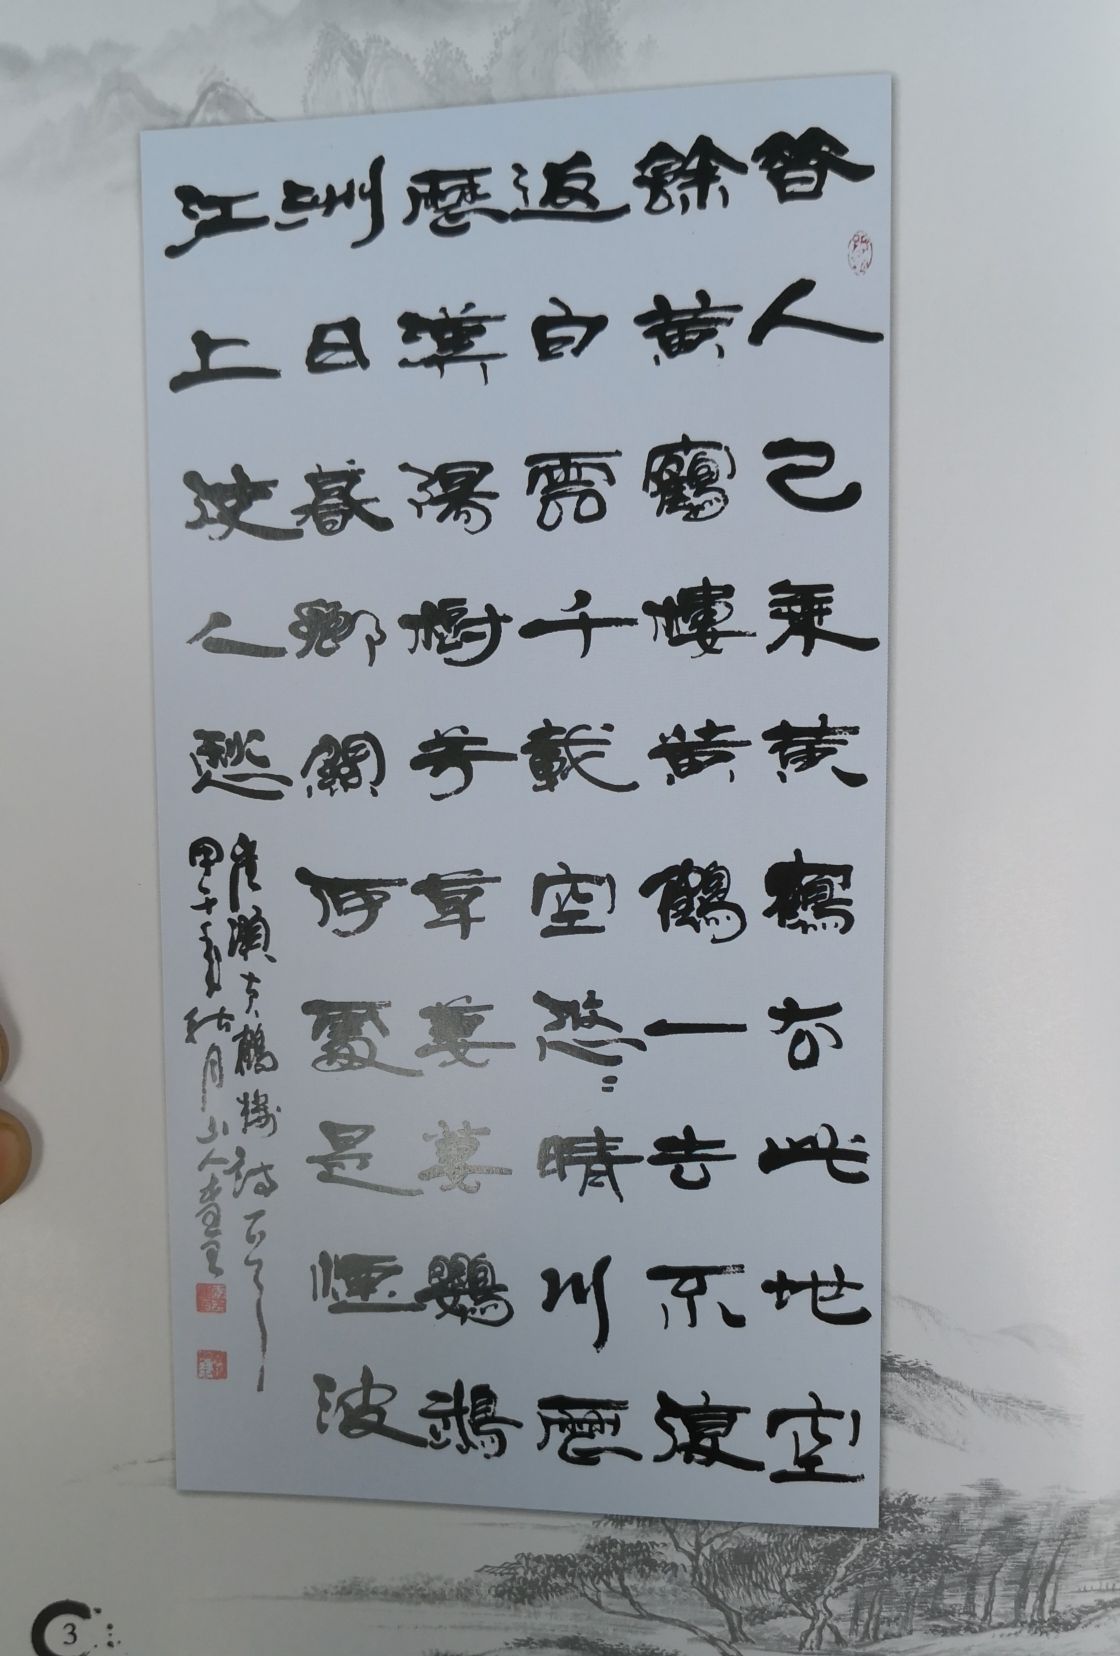 昔人已乘黄鶴去此地空
餘黄鶴樓黄鶴一去不復
返白雲千載空悠〻晴川歷
歷漢陽樹芳草萋萋鸚鵡
洲日暮鄉關何處是煙波
江上使人愁
崔顥黄鶴樓詩
甲午年秋月山人
3